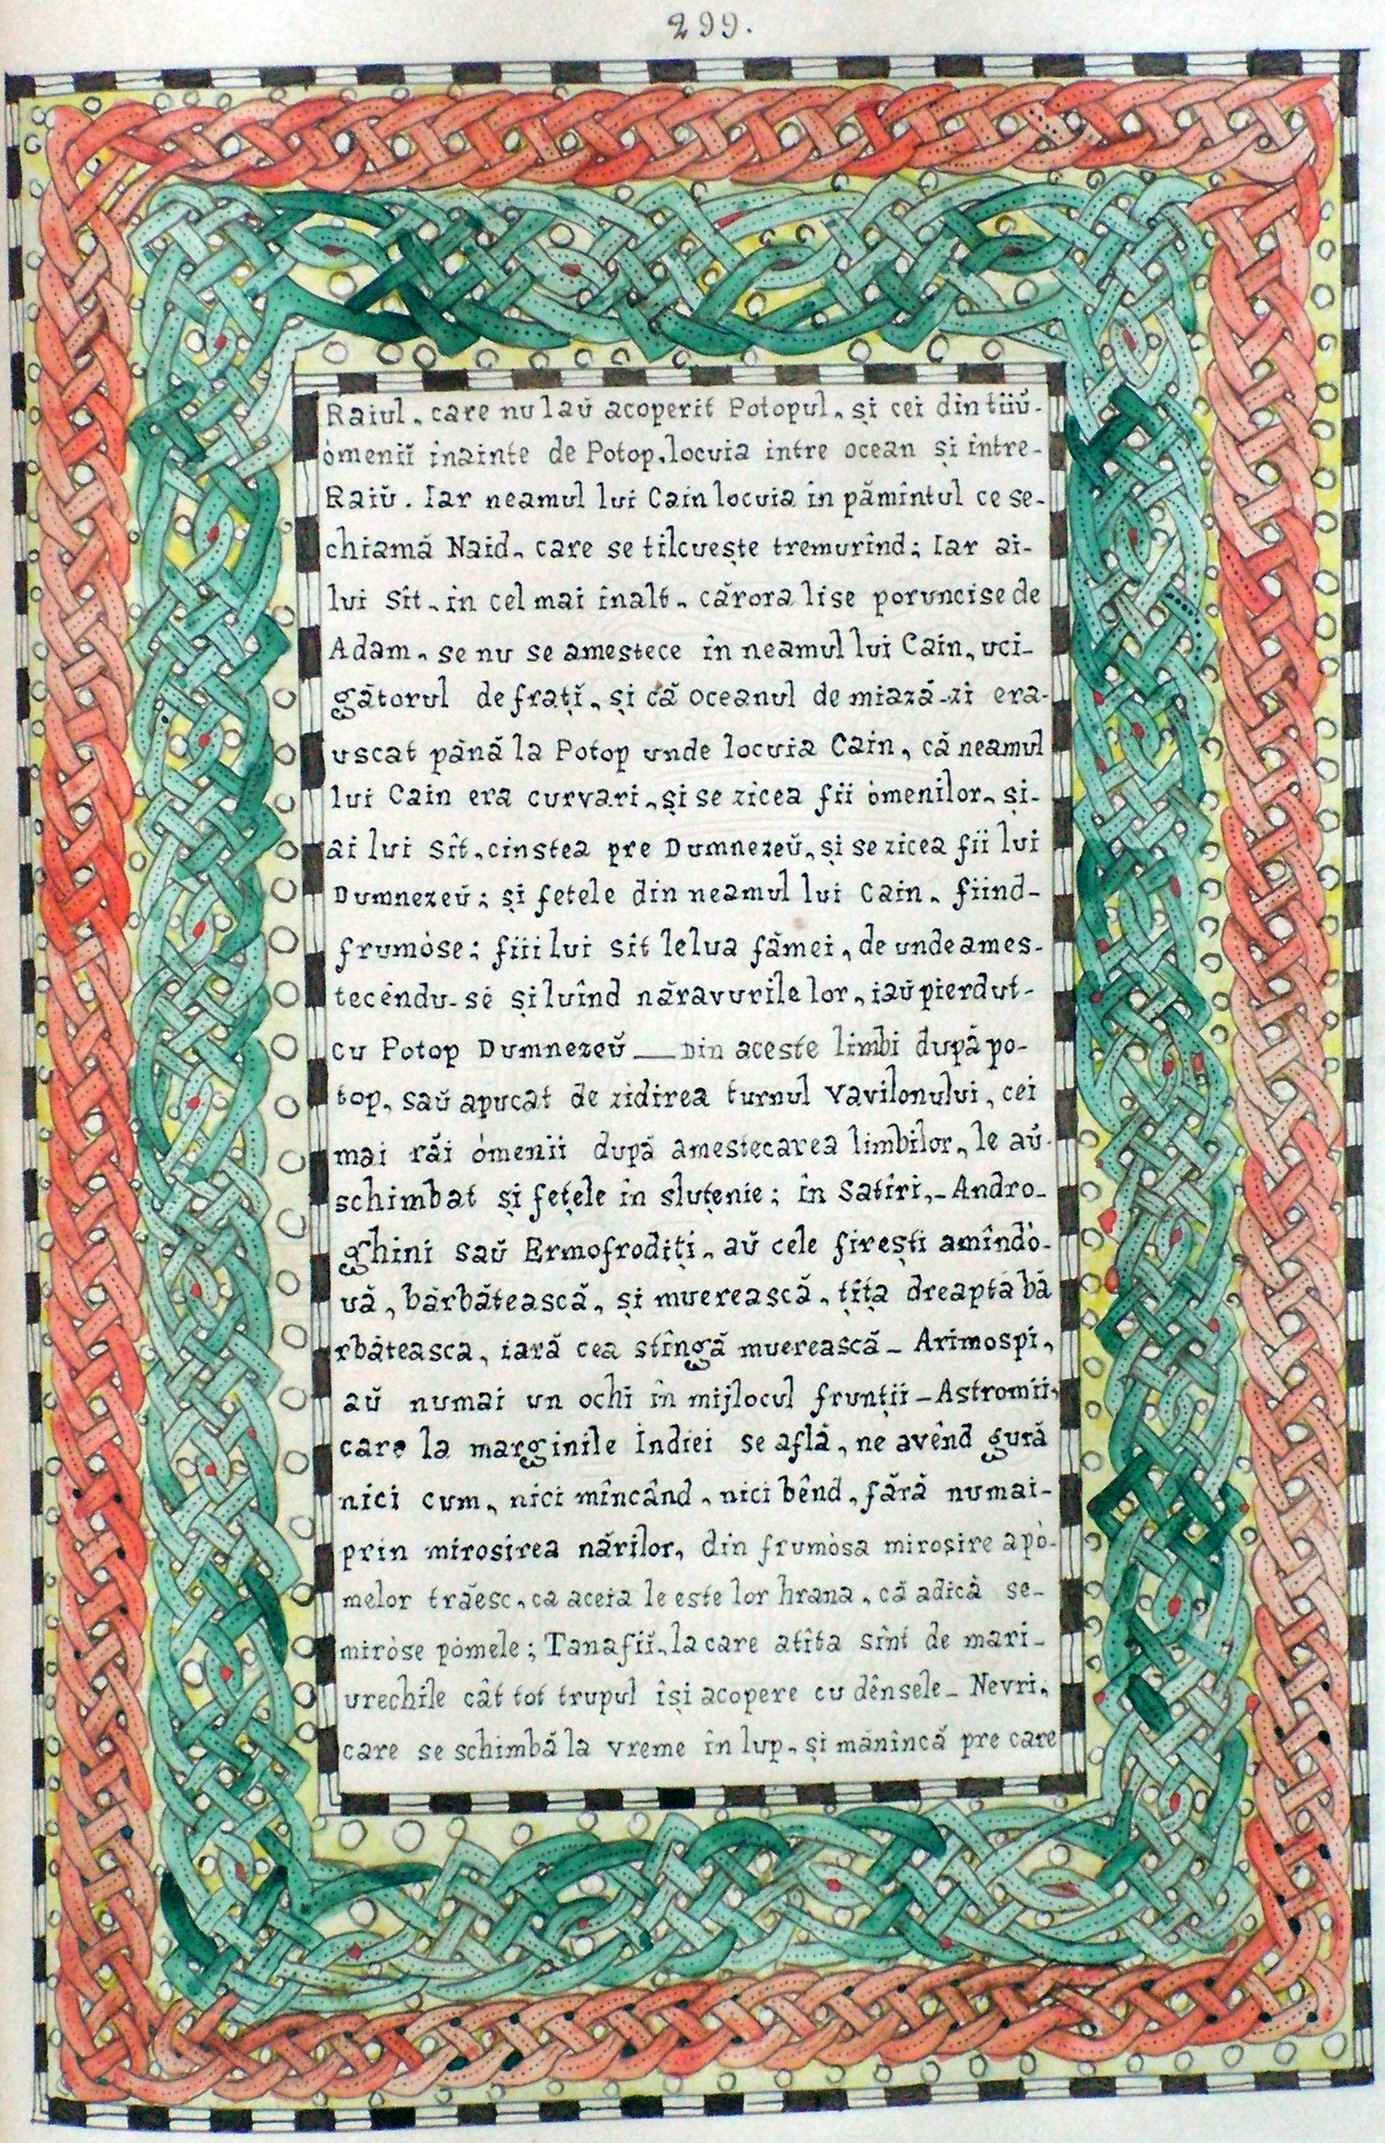 299.
Raiul, care nu laŭ acoperit Potopul, și cei dintiiŭ-
òmeniĭ inainte de Potop, locuia intre ocean și intre-
Raiŭ. Iar neamul lui Cain locuia în pămîntul ce se-
chiamă Naid, care se tilcuește tremurînd; Iar ai-
lui Sît, in cel mai înalt, cărora li se poruncise de
Adam, se nu se amestece în neamul lui Cain, uci-
gătorul de frațĭ, și că oceanul de miază-zi era-
uscat până la Potop unde locuia Cain, că neamul
lui Cain era curvari, și se zicea fii òmenilor, și-
ai lui Sît, cinstea pre Dumnezeŭ, și se zicea fii lui
Dumnezeŭ; și fetele din neamul lui Cain, fiind-
frumòse; fiii lui Sît le lua fămei, de unde ames-
tecêndu-sé și luînd năravurile lor, iaŭ pierdut-
cu Potop Dumnezeŭ — Din aceste limbi după po-
top, saŭ apucat de zidirea turnul Vavilonului, cei
mai răi òmenii după amestecarea limbilor, le aŭ-
schimbat și fețele în sluțenie; în Satîri, - Andro-
ghini saŭ Ermofrodiți, aŭ cele firești amîndò-
uă, bărbătească, și muerească, țîța dreaptă bă
rbătească, iară cea stîngă muerească - Arimospi,
aŭ numai un ochi în mijlocul frunții - Astromii,
care la marginile Indiei se află, ne avênd gură
nici cum, nici mîncând, nici bênd, fără numai-
prin mirosirea nărilor, din frumòsa mirosire a pò-
melor trăesc, ca aceia le este lor hrana, că adică se-
miròse pòmele; Tanafiĭ, la care atîta sînt de mari-
urechile cât tot trupul își acopere cu dênsele - Nevri,
care se schimbă la vreme în lup, și mănîncă pre care